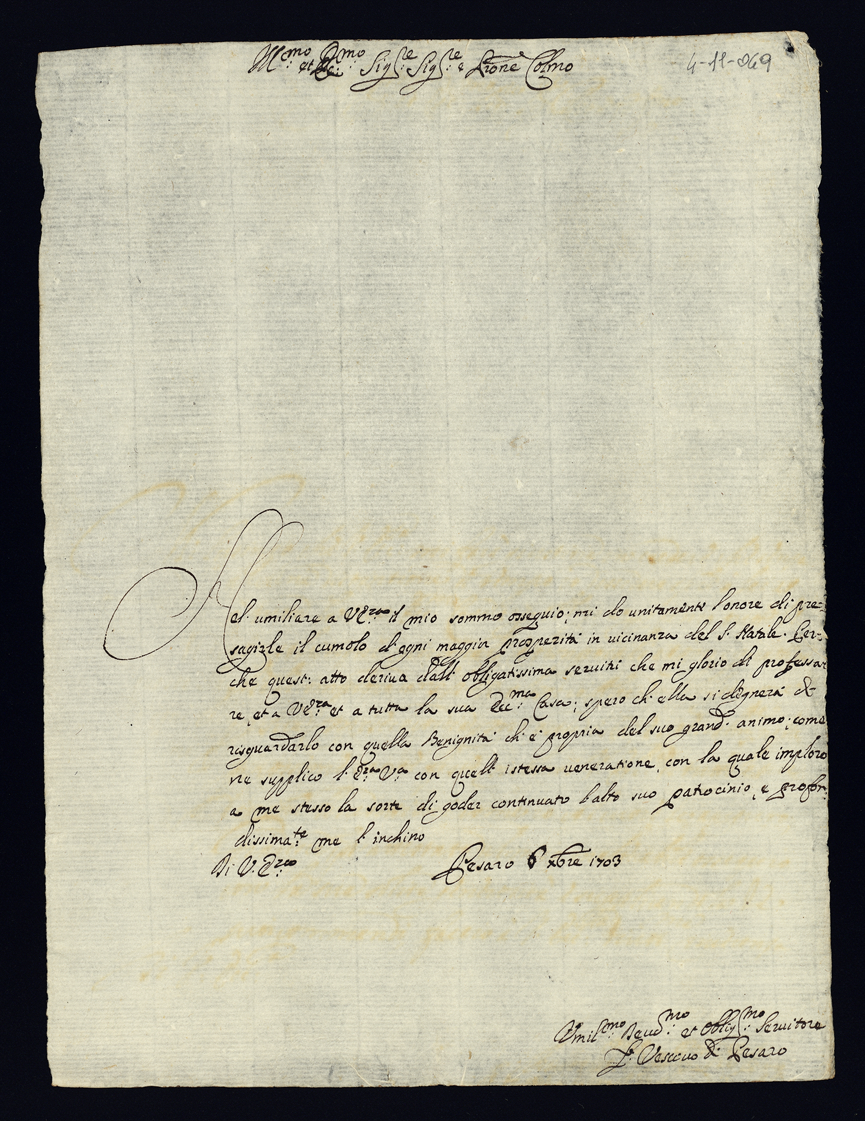 Em.mo et Re.mo Sig.re Sig.re e Prone Col.mo
4-11-869
Nel umiliare a V Em.za il mio sommo ossequio; mi do unitamente l'onore di pre-
sagirle il cumolo d'ogni maggior prosperità in vicinanza del S. Natale. Per-
che quest'atto deriva dall'obligatissima servitù che mi glorio di professa-
re, et a V Em.za et a tutta la sua Ecc.ma Casa; spero ch'ella si degnerà di
risguardarlo con quella Benignità ch'è propria del suo grand'animo; come
ne supplico l'Em.za V.ra con quell'istessa veneratione, con la quale imploro
a me stesso la sorte di goder continuato l'alto suo patrocinio, e profon-
dissima.te me l'inchino
Di V. Em.za
Pesaro 6 Xbre 1703
Umil.mo Devot.mo et Oblig.mo Servitore
Vescovo di Pesaro